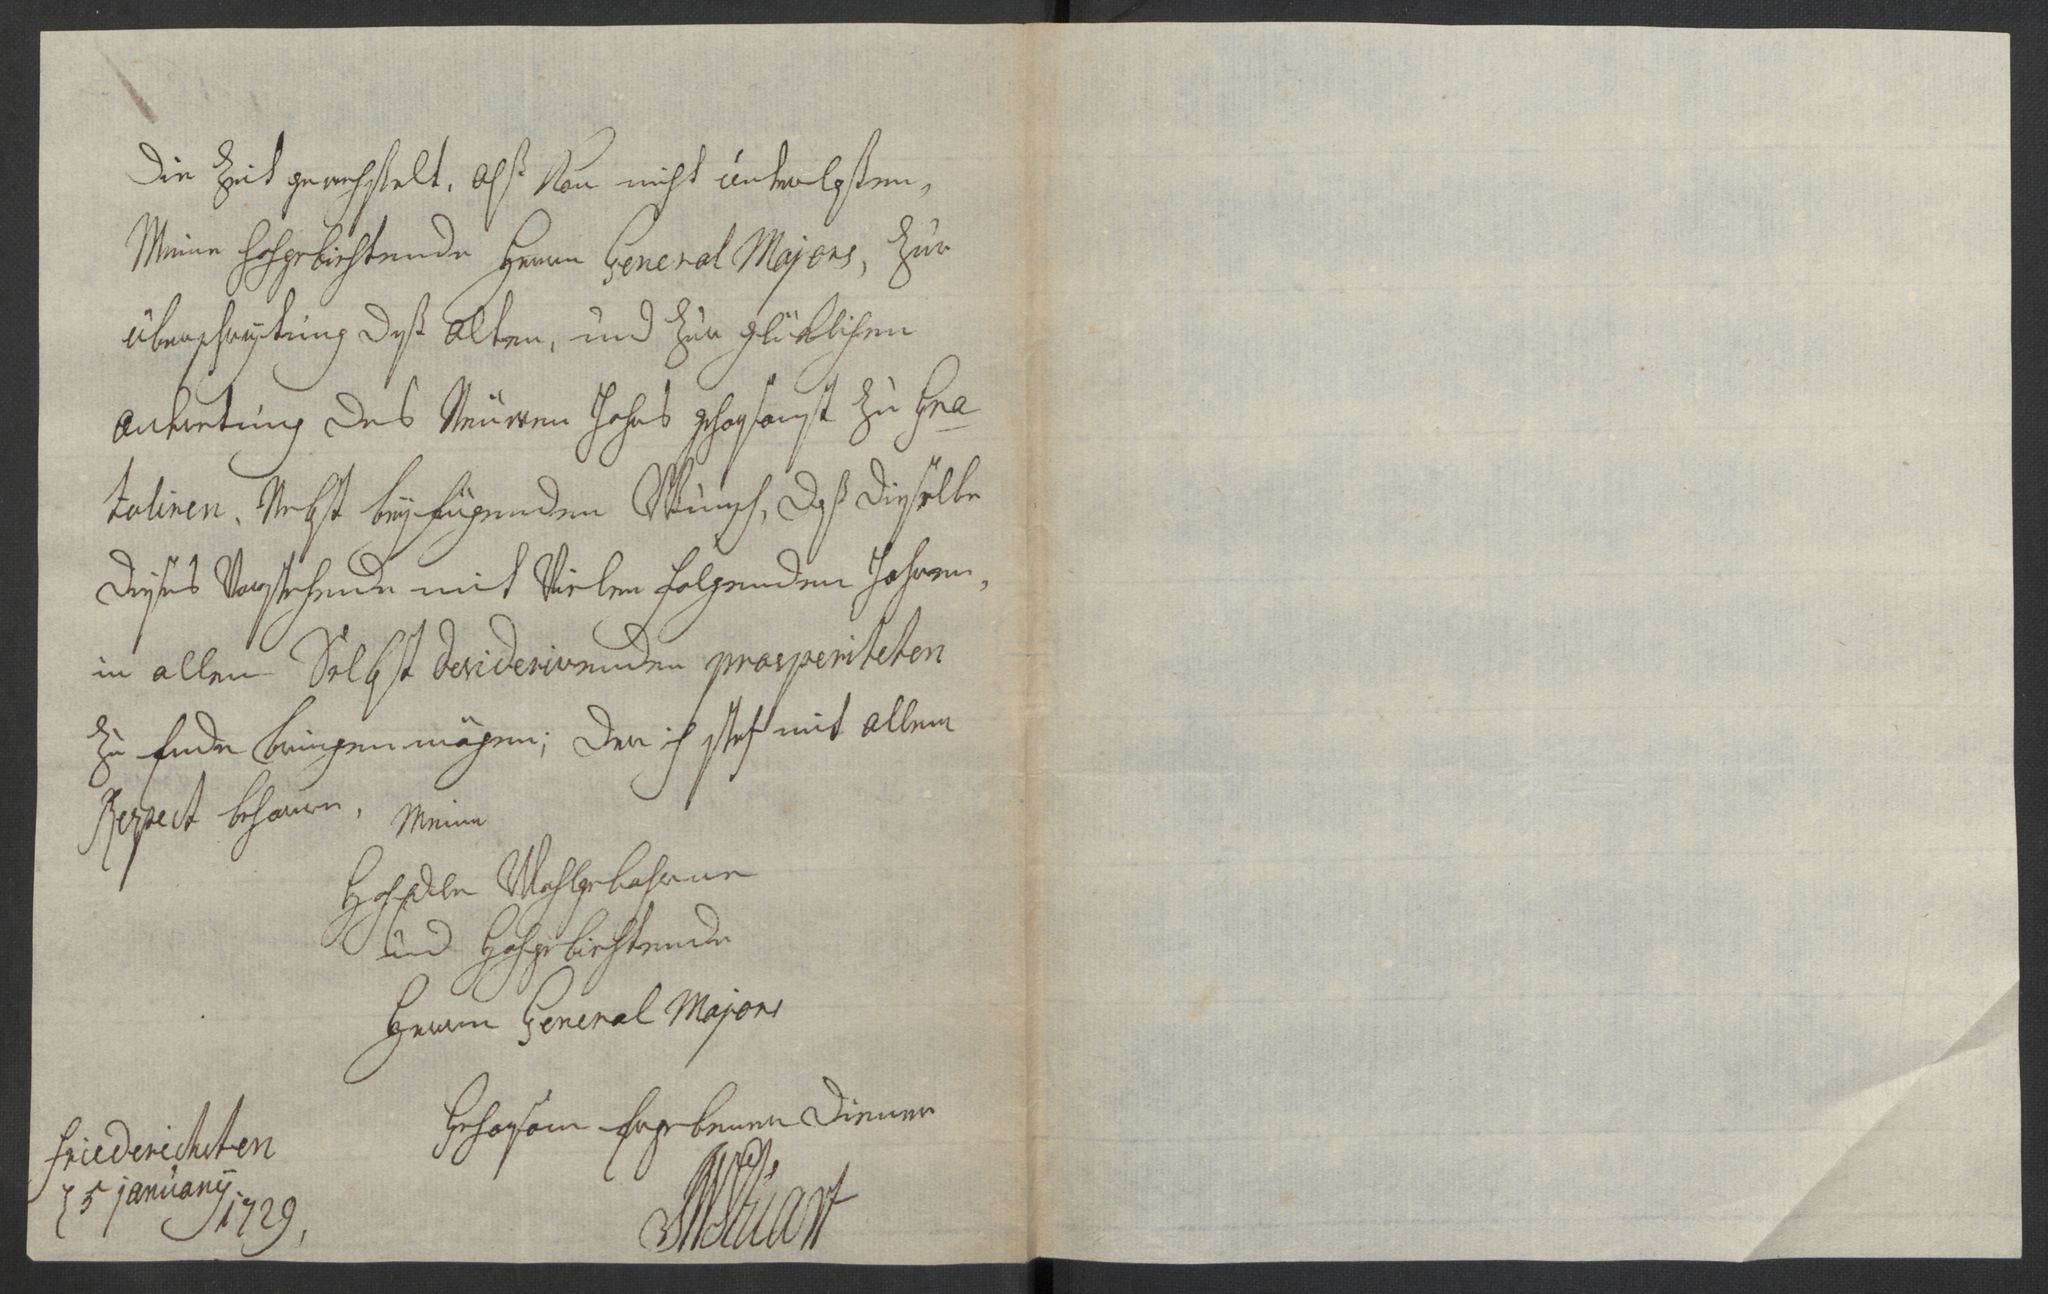 Die Zeit gewechselt, alß Kan nicht unterlaßen,
Meine hochgebiehtende Herrn General Majors, zur
überschreitung deß alten, und zur glüklichen
antretung des Neuwen Jahrs gehorsamst zu Gra
tuliren, Nebst beÿfügenden Wunsch, daß dieselbe
dieses Vorstehende mit Vielen folgenden Jahren,
in allen Selbst desiderirenden prosperiteten
zu Ende bringen mögen; der ich stets mit allem
Respect beharre, Meine
HochEdle Wohlgebohrne
und Hochgebiehtende
Herrn General Majors
Gehorsam Ergebener Diener
Stüart
Friederichsten
5 januarÿ
1729,